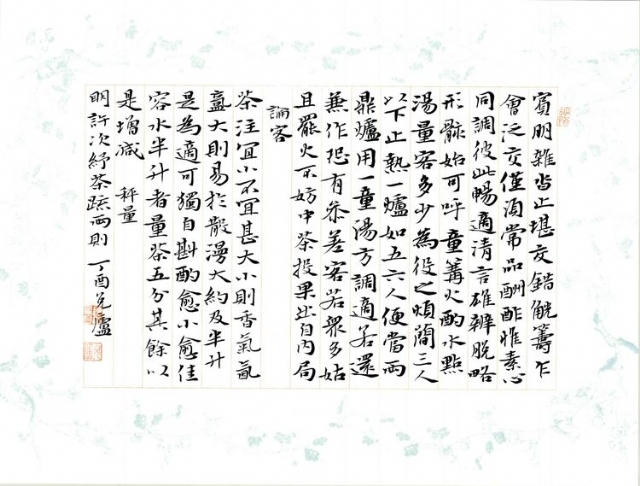 賓朋雜沓止堪交錯觥籌乍
會泛交僅須常品酬酢惟素心
同調彼此暢適清言雄辯脫略
形骸始可呼童篝火酌水點
湯量客多少為役之煩簡三人
以下止爇一爐如五六人便當兩
鼎爐用一童湯方調適若還
兼作恐有參差客若眾多姑
且罷火不妨中茶投果出自內局
論客
茶注宜小不宜甚大小則香氣氤
氳大則易於散漫大約及半升
是為適可獨自斟酌愈小愈佳
容水半升者量茶五分其餘以
是增減 秤量
明許次紓茶疏兩則 丁酉兌廬